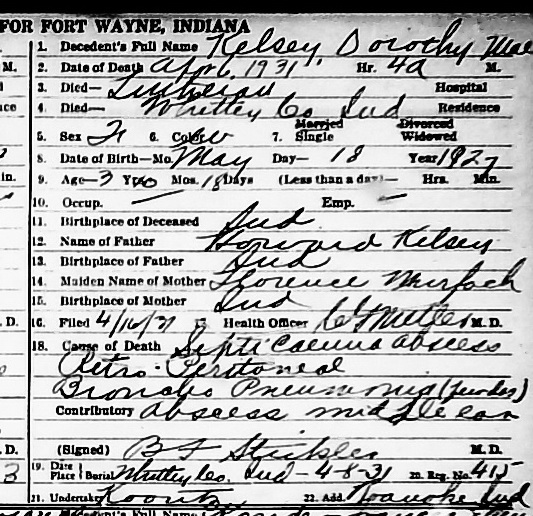 FOR FORT WAYNE, INDIANA
1. Decedent's Full Name Kelsey, Dorothy Mae
M. 2. Date of Death Apr 6, 1931 Hr. 4a M.
3. Died— Lutheran Hospital
4. Died— Whitley Co Ind Residence
5. Sex F 6. Color W 7. Married Single Divorced Widowed
8. Date of Birth—Mo. May Day— 18 Year 1927
in. 9. Age—3 Yrs Mos. 18 Days (Less than a day)— Hrs. Min.
10. Occup. — Emp. —
11. Birthplace of Deceased Ind
12. Name of Father Howard Kelsey
13. Birthplace of Father Ind
14. Maiden Name of Mother Florence
15. Birthplace of Mother Ind
D. 16. Filed 4/16/31 17. Health Officer M.D.
18. Cause of Death Septicaemia abscess
Retro-Peritoneal
Broncho Pneumonia
Contributory abscess middle ear
D. (Signed) B F Strickler M.D.
3 19. Date Place Burial Whitley Co. Ind - 4-8-31 20. Reg. No. 415
21. Undertaker Koontz 22. Add. Roanoke Ind
Decedent's Full Name